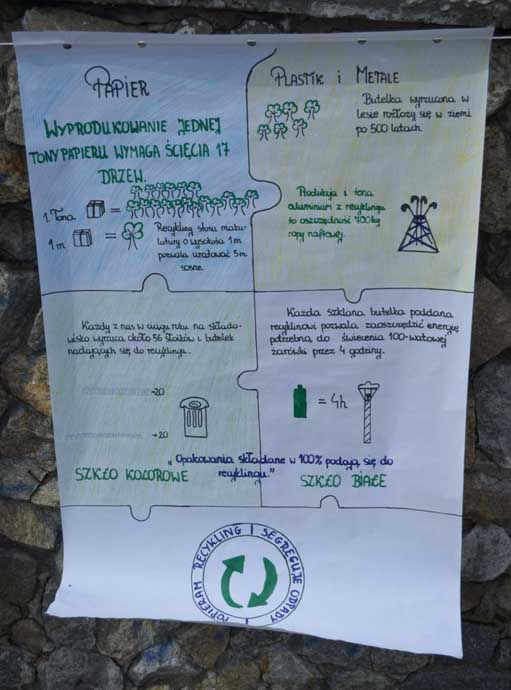 PAPIER
WYPRODUKOWANIE JEDNEJ
TONY PAPIERU WYMAGA ŚCIĘCIA 17
DRZEW.
1 Tona =
1 m =
Recykling stosu maku-
latury o wysokości 1m
pozwala uratować 5m
sosnę.
PLASTIK i METALE
Butelka wyrzucona w
lesie rozłoży się w ziemi
po 500 latach.
Produkcja 1 tona
aluminium z recyklingu
to oszczędność 700kg
ropy naftowej.
Każdy z nas w ciągu roku na składo-
wisko wyrzuca około 56 słoików i butelek
nadających się do recyklingu.
→20
→20
SZKŁO KOLOROWE
Każda szklana butelka poddana
recyklinowi pozwala zaoszczędzić energię
potrzebną do świecenia 100-watowej
żarówki przez 4 godziny.
= 4h
„Opakowania składane w 100% podają się do
recyklingu."
SZKŁO BIAŁE
POPIERAM RECYKLING I SEGREGUJĘ ODPADY